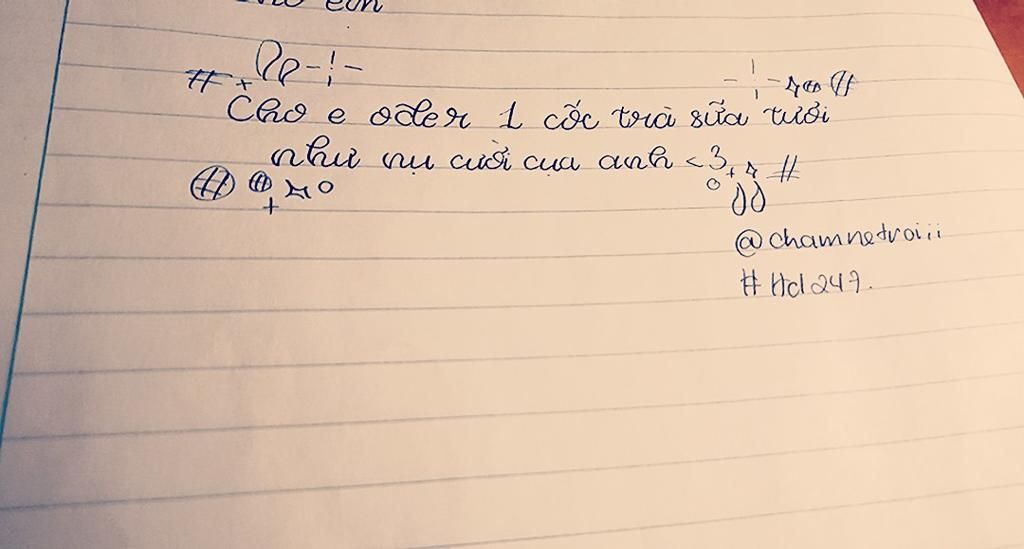 em
Cho e oder 1 cốc trà sữa tươi
như nụ cười của anh <3
@chamnetroiii
#Hd247.